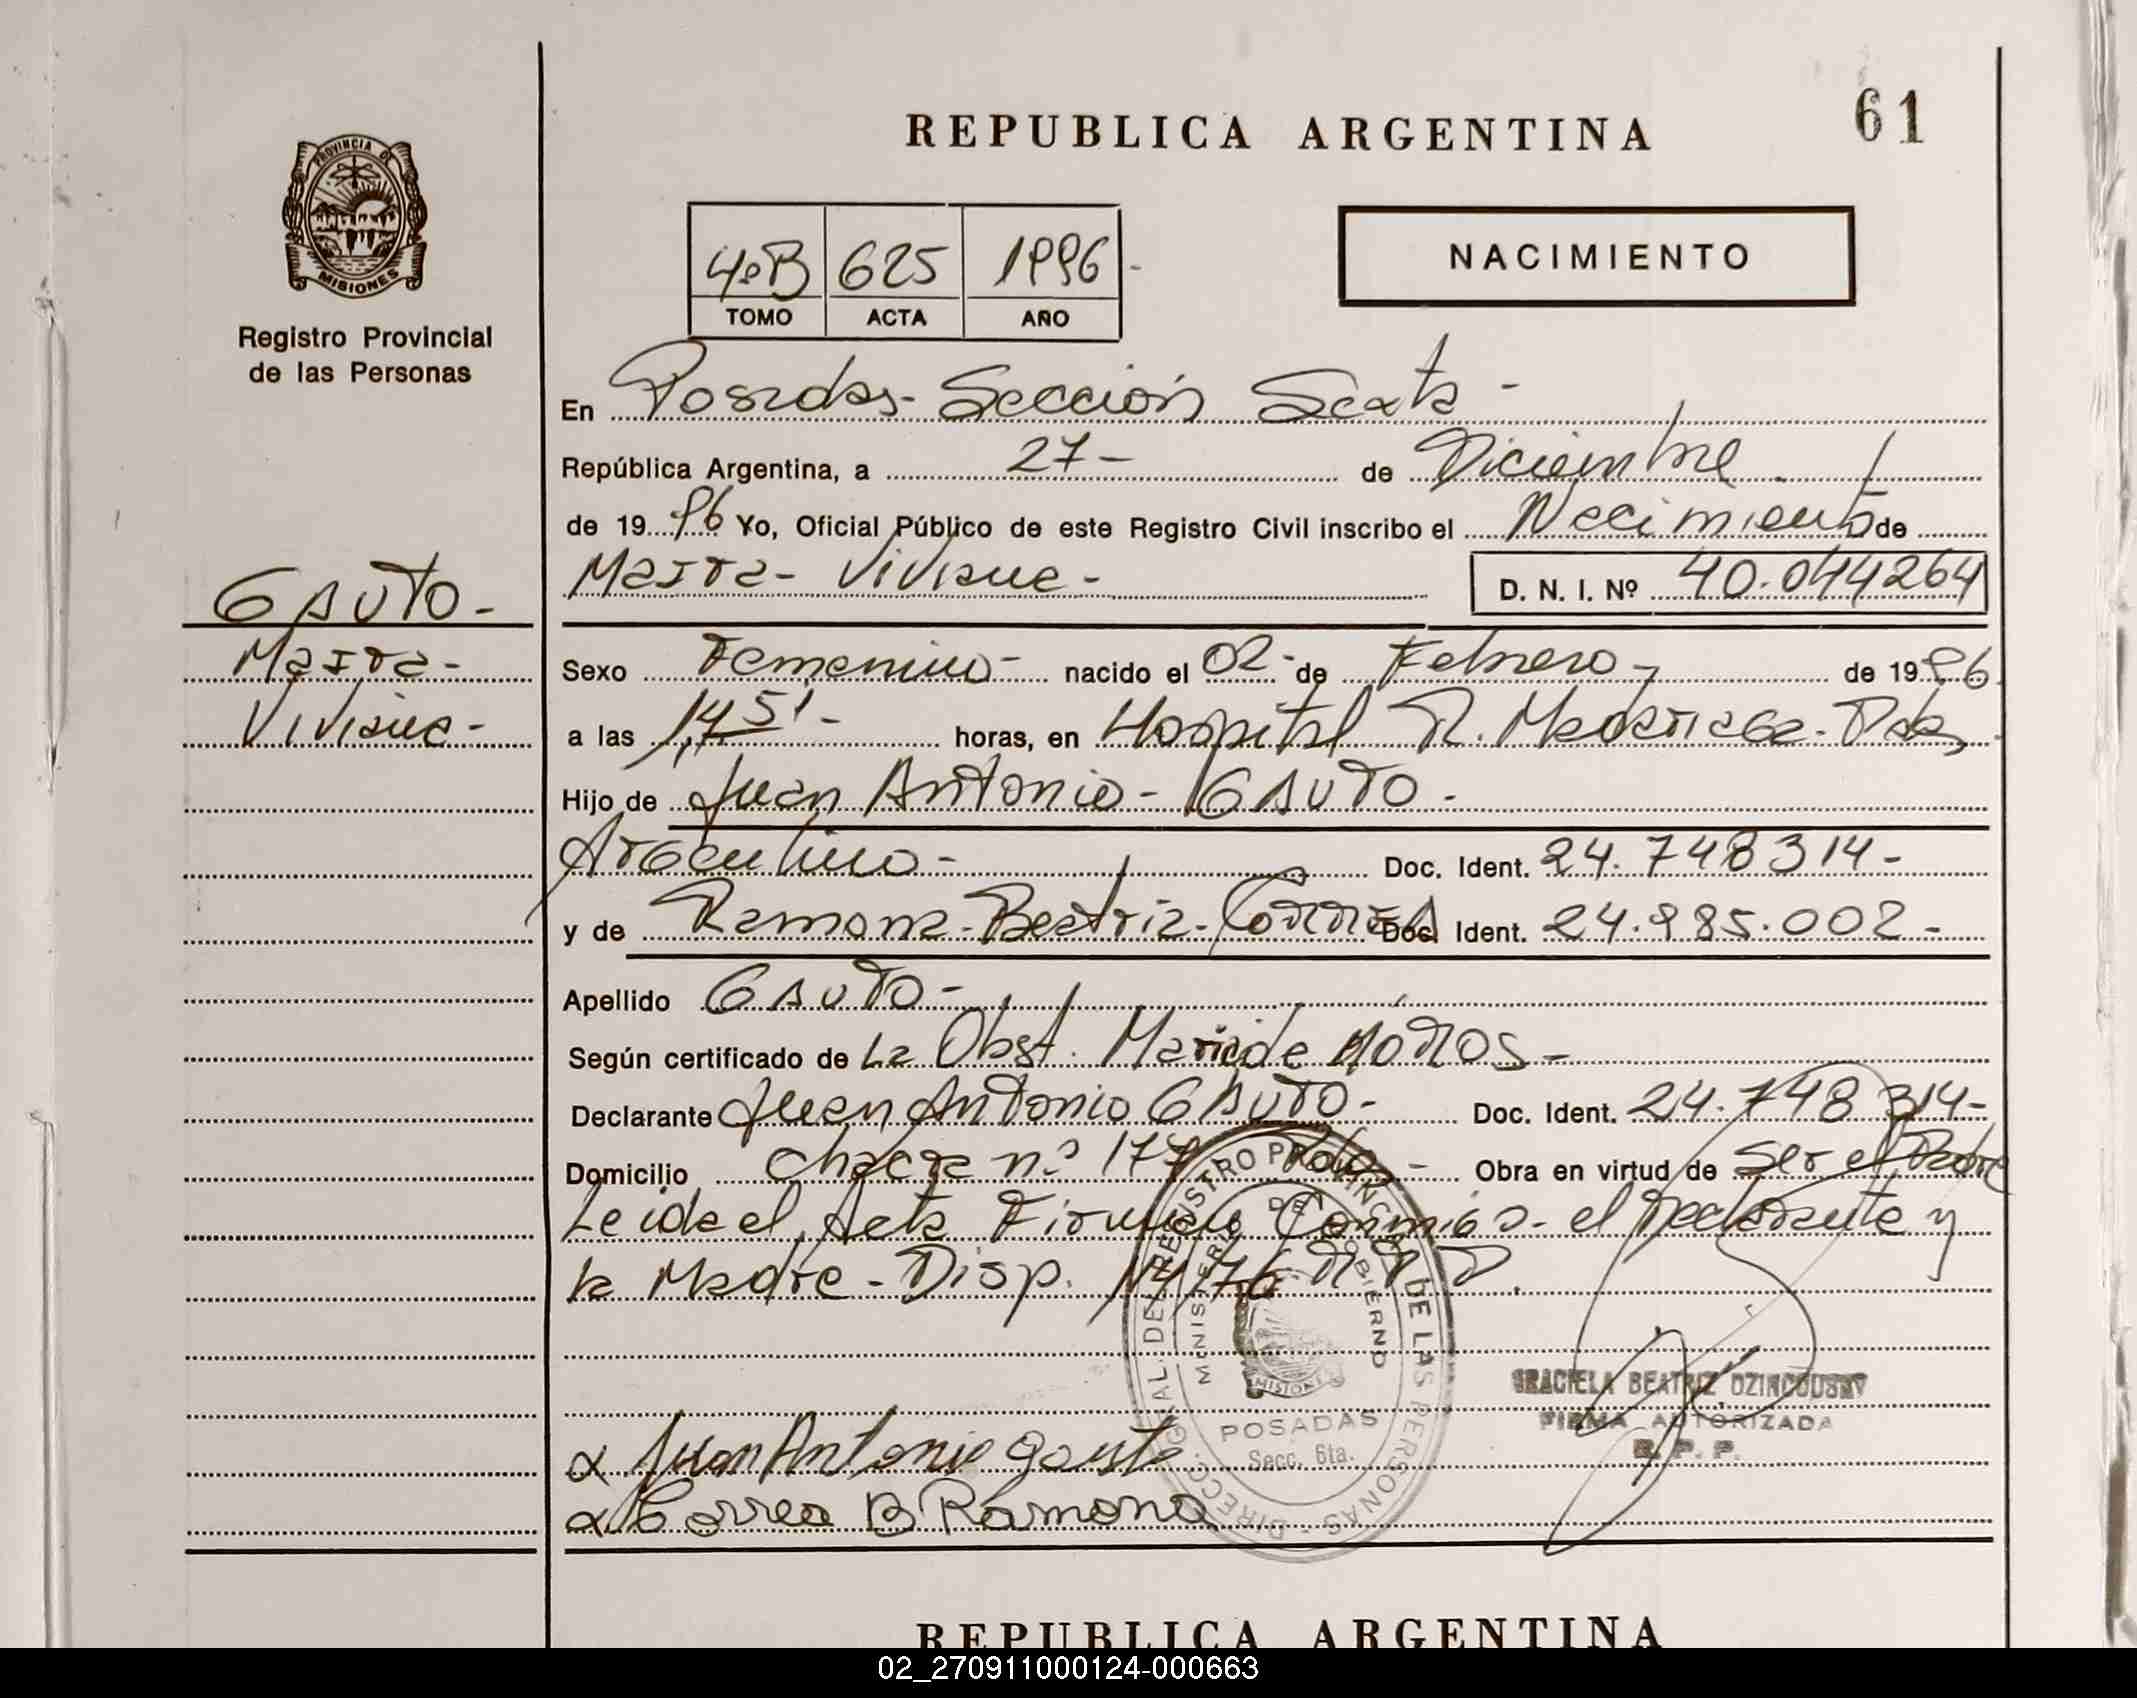 REPUBLICA ARGENTINA
61
PROVINCIA DE
MISIONES
Registro Provincial
de las Personas
4ºB 625 1996 -
TOMO ACTA AÑO
NACIMIENTO
En Posadas - Sección Sexta -
República Argentina, a 27 - de Diciembre
de 19 96 Yo, Oficial Público de este Registro Civil inscribo el Nacimiento de
Maira - Viviana - D. N. I. Nº 40.044264
GAUTO -
Maira -
Viviana -
Sexo Femenino - nacido el 02 - de Febrero - de 19 96
a las 14,51' - horas, en Hospital R. Madariaga - Pdas
Hijo de Juan Antonio - GAUTO -
Argentino - Doc. Ident. 24.748314 -
y de Ramona - Beatriz - Correa Doc. Ident. 24.985.002 -
Apellido GAUTO -
Según certificado de La Obst. Maria de
Declarante Juan Antonio GAUTO - Doc. Ident. 24.748314 -
Domicilio chacra n.º 177 Pdas - Obra en virtud de ser el Padre
Leida el Acta Firman Conmigo - el declarante y
la Madre - Disp. 14/76 R.P.P.
DIRECC. GRAL. DEL REGISTRO PROVINCIAL DE LAS PERSONAS -
MINISTERIO DE GOBIERNO
MISIONES
POSADAS
Secc. 6ta.
GRACIELA BEATRIZ DZINCOUSKY
FIRMA AUTORIZADA
R. P. P.
x Juan Antonio gauto
x Correa B Ramona
REPUBLICA ARGENTINA
02_270911000124-000663